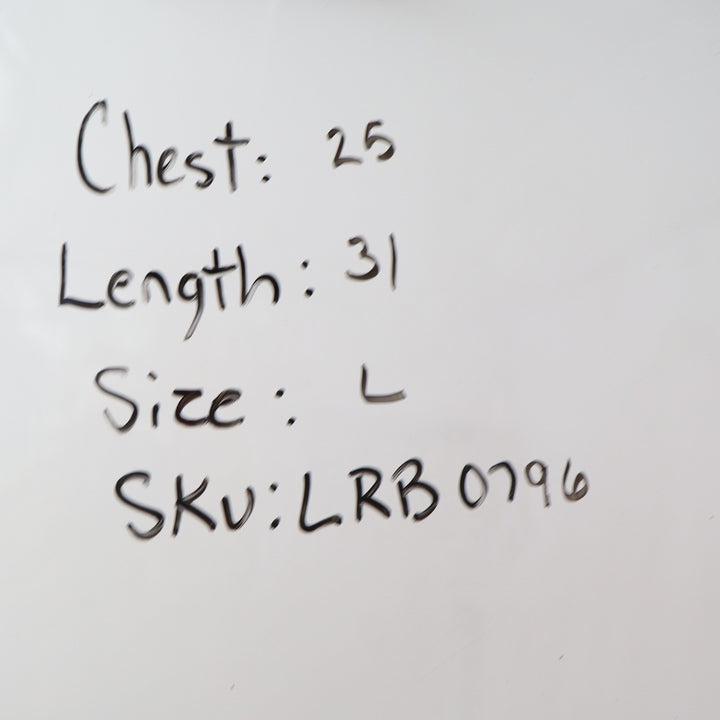 Chest: 25
Length: 31
Size: L
SKU: LRB0796